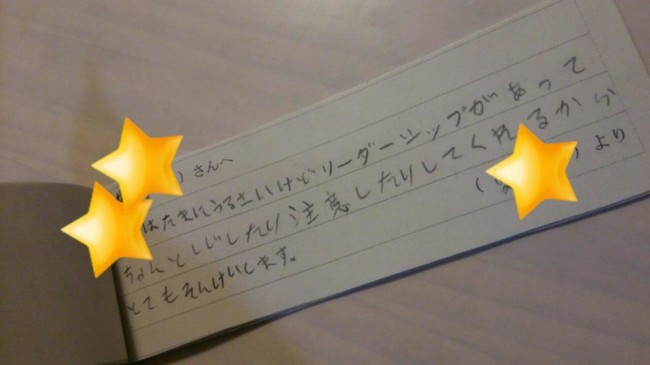 )さんへ
はたまにうるさいけどリーダーシップがあって
ちゃんとしじしたり注意したりしてくれるから
とてもそんけいします。
( )より